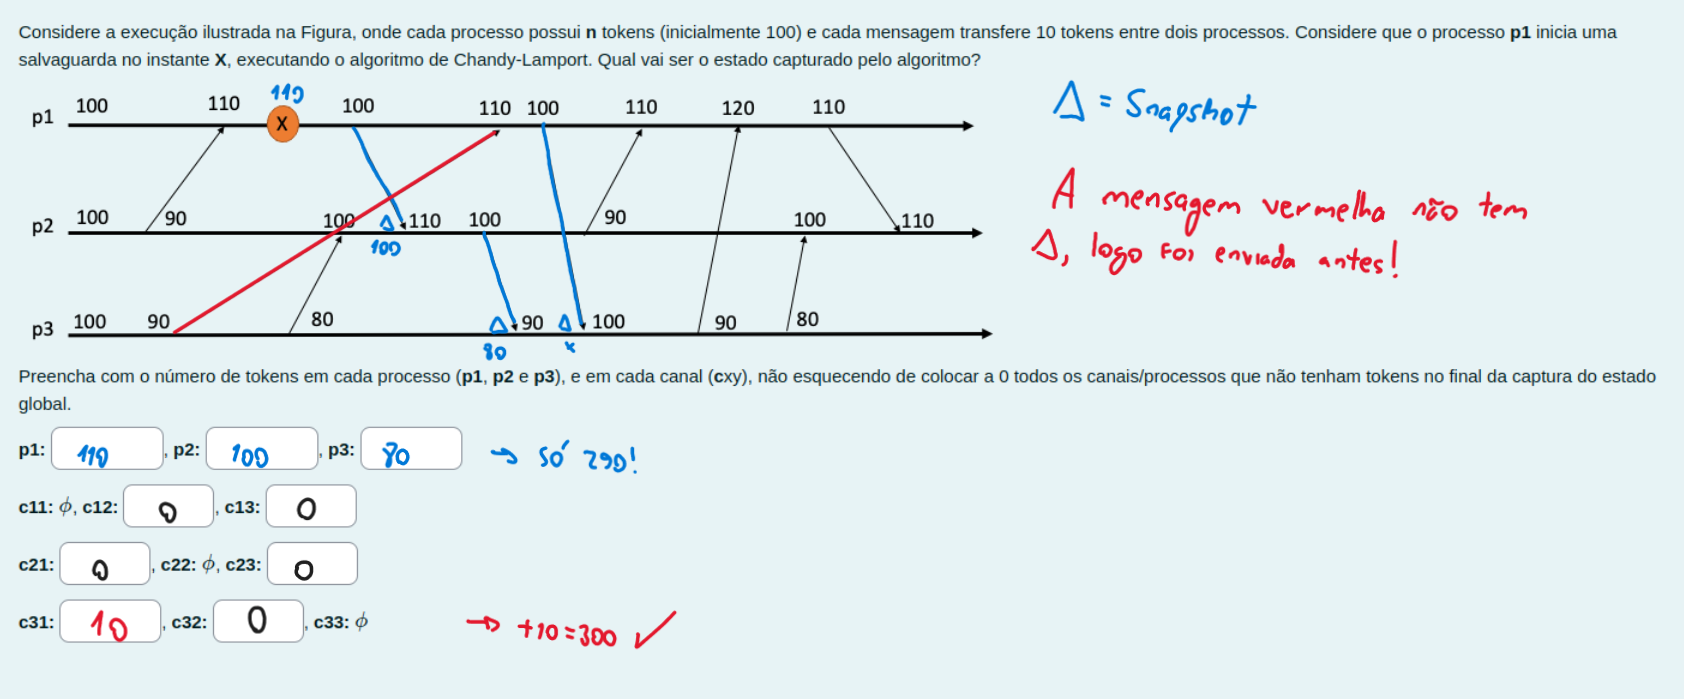 Considere a execução ilustrada na Figura, onde cada processo possui n tokens (inicialmente 100) e cada mensagem transfere 10 tokens entre dois processos. Considere que o processo p1 inicia uma
salvaguarda no instante X, executando o algoritmo de Chandy-Lamport. Qual vai ser o estado capturado pelo algoritmo?
110
p1 100 110 X 100 110 100 110 120 110
Δ = Snapshot
p2 100 90 100 Δ 110 100 90 100 110
100
A mensagem vermelha não tem
Δ, logo foi enviada antes!
p3 100 90 80 Δ 90 Δ 100 90 80
80 x
Preencha com o número de tokens em cada processo (p1, p2 e p3), e em cada canal (cxy), não esquecendo de colocar a 0 todos os canais/processos que não tenham tokens no final da captura do estado
global.
p1: 110, p2: 100, p3: 80 → só 290!
c11: ϕ, c12: 0, c13: 0
c21: 0, c22: ϕ, c23: 0
c31: 10, c32: 0, c33: ϕ → +10=300 ✓